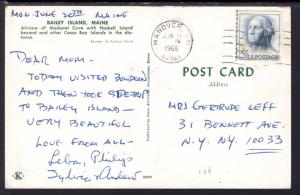 MON - JUNE 20TH MAINE
BAILEY ISLAND, MAINE
Airview of Mackerel Cove with Haskell Island
beyond and other Casco Bay Islands in the dis-
tance.
DEAR MOM -
TODAY VISITED BOWDOIN
AND THEN TOOK
TO BAILEY ISLAND -
VERY BEAUTIFUL
LOVE FROM ALL -
Leba, Philip,
Sylvia + Andrew
HANOVER
JUN
1966
5¢ U.S. POSTAGE
POST CARD
Address
MRS GERTRUDE LEFF
31 BENNETT AVE.
N.Y. N.Y. 10033
K